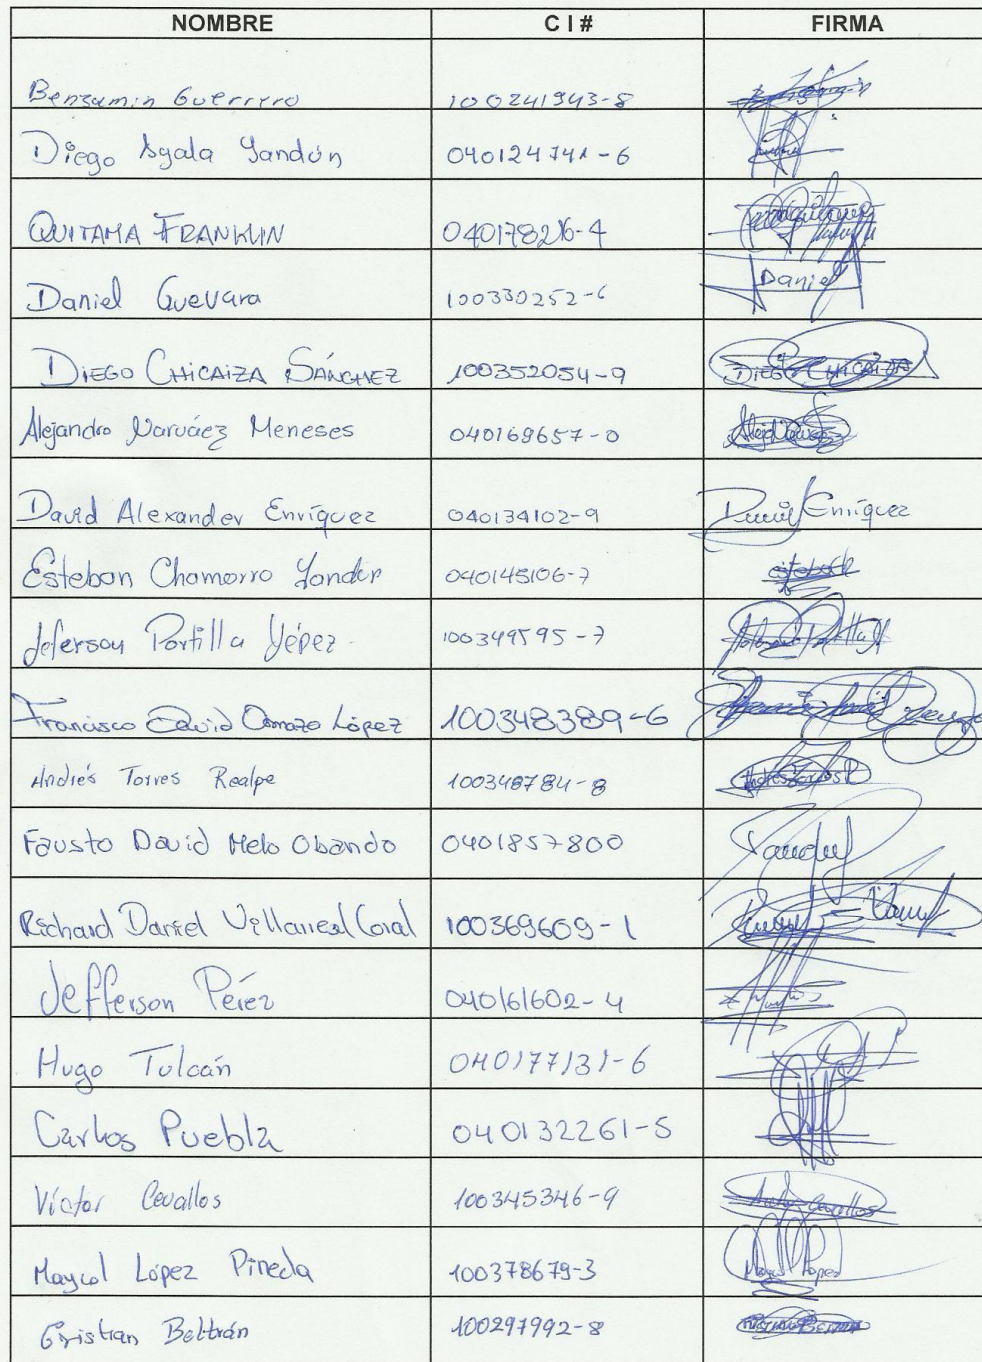 NOMBRE C I # FIRMA
Benzamin Guerrero 100241943-8
Diego Ayala Landón 040124741-6
QUITAMA FRANKLIN 040178216-4
Daniel Guevara 100330252-6 Daniel
DIEGO CHICAIZA SÁNCHEZ 100352054-9 DIEGO CHICAIZA
Alejandro Narváez Meneses 040169657-0
David Alexander Enríquez 040134102-9 Enríquez
Esteban Chamorro 040145106-7
Jeferson Portilla Yépez 100349595-7
Francisco David López 100348389-6
Andrés Torres Realpe 100348784-8
Fausto David Melo Obando 0401857800
Richard Daniel Villarreal Coral 100369609-1
Jefferson Pérez 040161602-4
Hugo Tulcán 040177131-6
Carlos Puebla 040132261-5
Víctor Cevallos 100345346-9 Cevallos
Maycol López Pineda 100378679-3 López
Cristian Beltrán 100297992-8